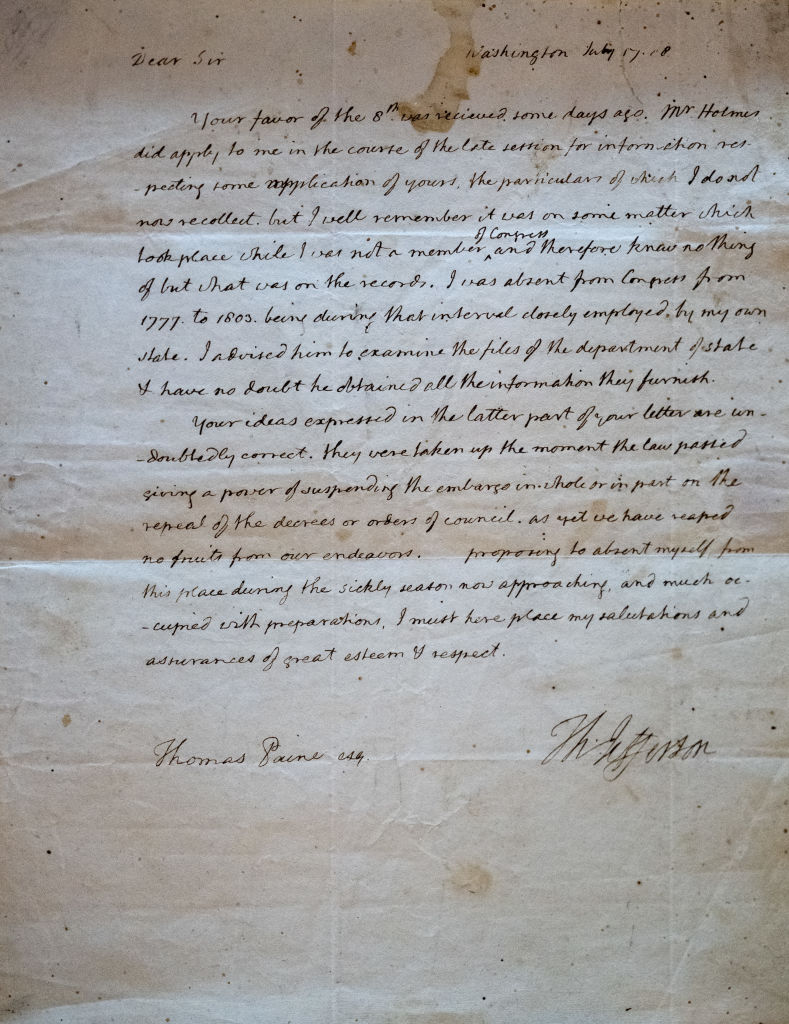 Dear Sir Washington July 17. 08
Your favor of the 8th. was recieved some days ago. Mr Holmes
did apply to me in the course of the late session for information res-
-pecting some application of yours, the particulars of which I do not
now recollect. but I well remember it was on some matter which
took place while I was not a member of Congress and therefore knew nothing
of but what was on the records. I was absent from Congress from
1777. to 1803. being during that interval closely employed by my own
state. I advised him to examine the files of the department of state
& have no doubt he obtained all the information they furnish.
Your ideas expressed in the latter part of your letter are un-
-doubtedly correct. they were taken up the moment the law passed
giving a power of suspending the embargo in whole or in part on the
repeal of the decrees or orders of council. as yet we have reaped
no fruits from our endeavors. proposing to absent myself from
this place during the sickly season now approaching, and much oc-
-cupied with preparations, I must here place my salutations and
assurances of great esteem & respect.
Thomas Paine esq. Th: Jefferson